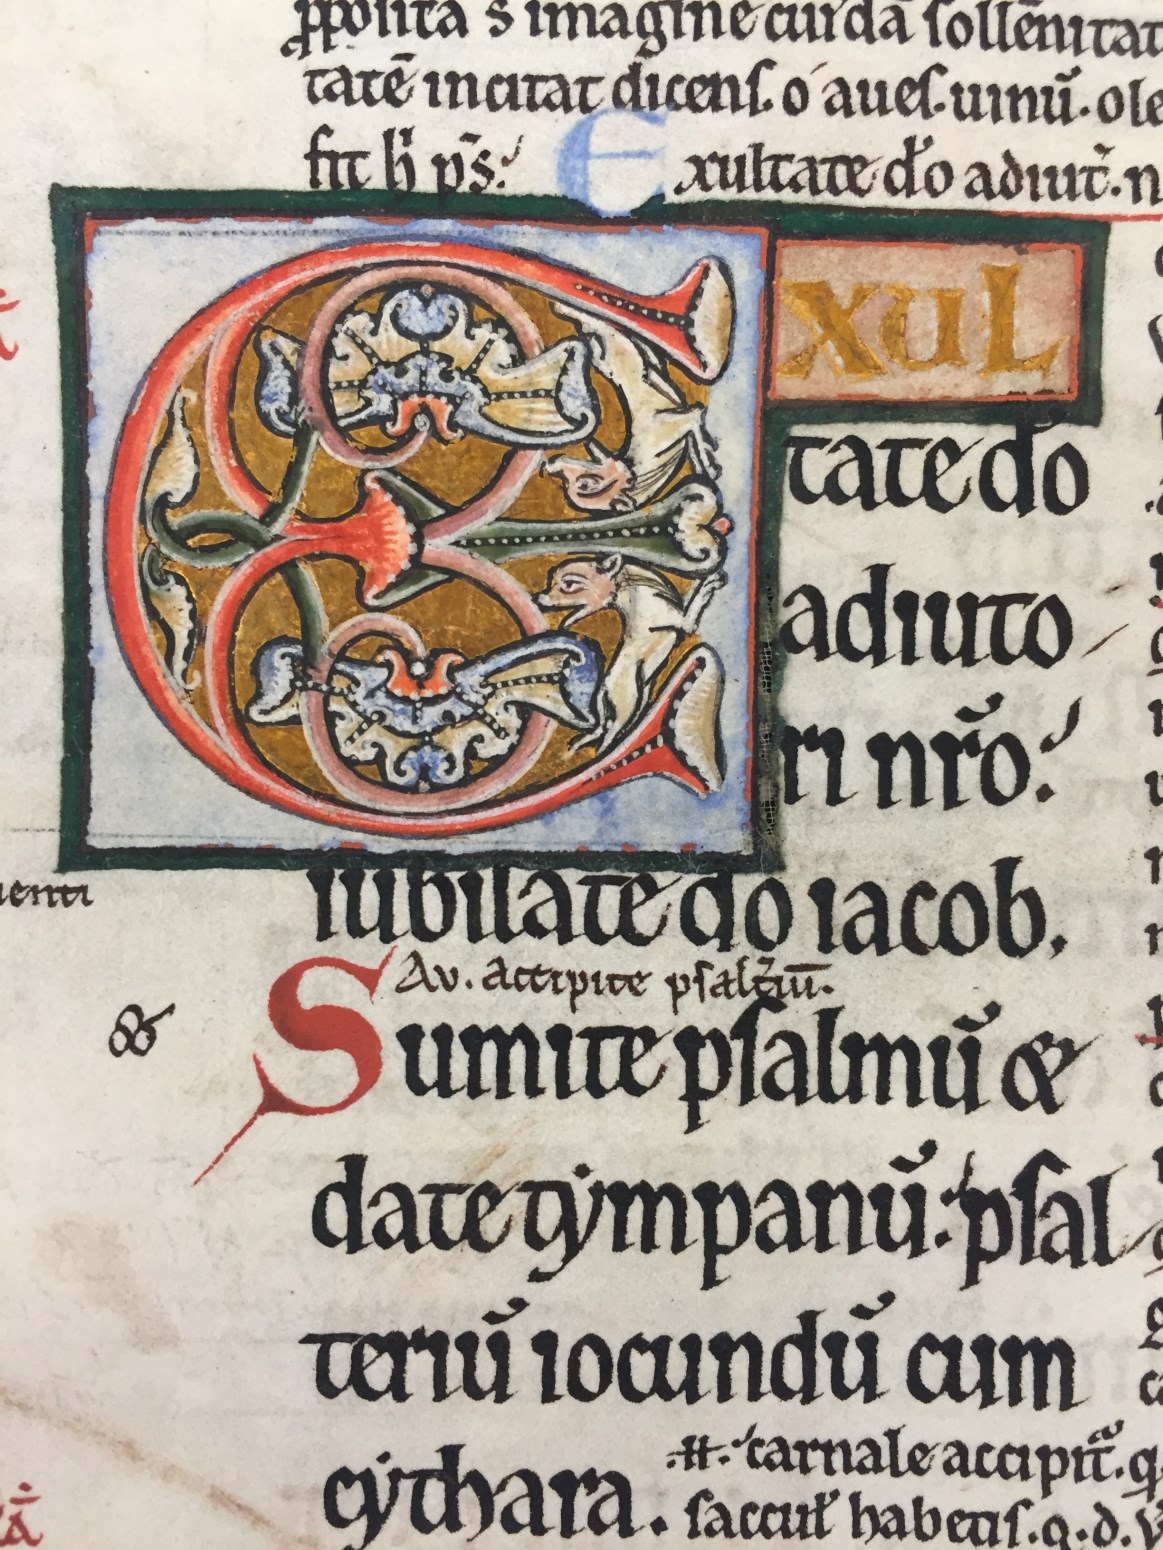 p̄posita s̄ imagine cuidā sollēnitat
tatē incitat dicens. o aues. uinū. ole
fit h̄ ps̄.
Exultate dō adiut̄. n
EXUL
tate dō
adiuto
ri nr̄o.
iubilate dō iacob.
uenti
Au. accipite psalt̄iū.
&
Sumite psalmū &
date tympanū. psal
teriū iocundū cum
cythara.
carnale accipit̄.
saccul̄ habetis. q. d.